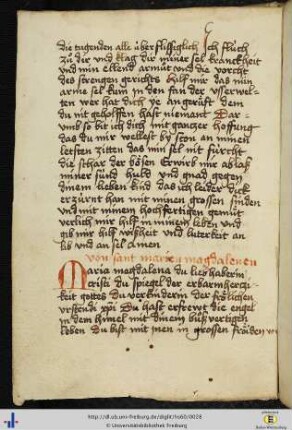 die tugenden alle überflüssiglich Ich flüch
zü dir vnd klag dir miner sel kranckheit
vnd min ellend armüt vnd die vorcht
des strengen gerichts hilf mir das min
arme sel kum in den fan der vsserwel-
ten wer hat dich ye angerüft dem
du nit geholffen hast niemant Dar-
vmb so bit ich dich mit gantzer hoffnung
das du mir wellest by ston an minen
letsten zitten das min sel nit fürcht
die schar der bösen Erwirb mir ablaß
miner sünd huld vnd gnad gegen
dinem lieben kind das ich leider dick
erzürnt han mit minen grossen sünden
vnd mit minem hochfertigen gemüt
verlich mir hilf in minem leben vnd
gib mir hilf wißheit vnd luterkeit an
lib vnd an sel Amen
von sant marien magdalenen
Maria magdalena du lieb haberin
cristi du spiegel der erbarmhertzi-
keit gottes du verkünderin der frölichen
vrstendi xpi Du hast erfrewt die engel
in dem himel mit dinem büßvertigen
leben Du bist mit inen in grossen fröuden
http://dl.ub.uni-freiburg.de/diglit/hs60/0028
© Universitätsbibliothek Freiburg